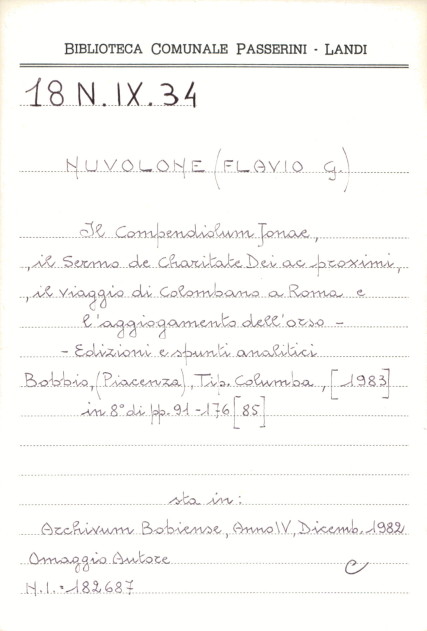 BIBLIOTECA COMUNALE PASSERINI - LANDI
18 N.IX.34
NUVOLONE (FLAVIO G.)
Il Compendiolum Jonae,
, il Sermo de Charitate Dei ac proximi,
, il viaggio di Colombano a Roma e
l'aggiogamento dell'orso -
- Edizioni e spunti analitici
Bobbio, (Piacenza), Tip. Columba, [1983]
in 8° di pp. 91-176 [85]
sta in:
Archivum Bobiense, Anno IV, Dicemb. 1982
Omaggio Autore
C
N.I. = 182687